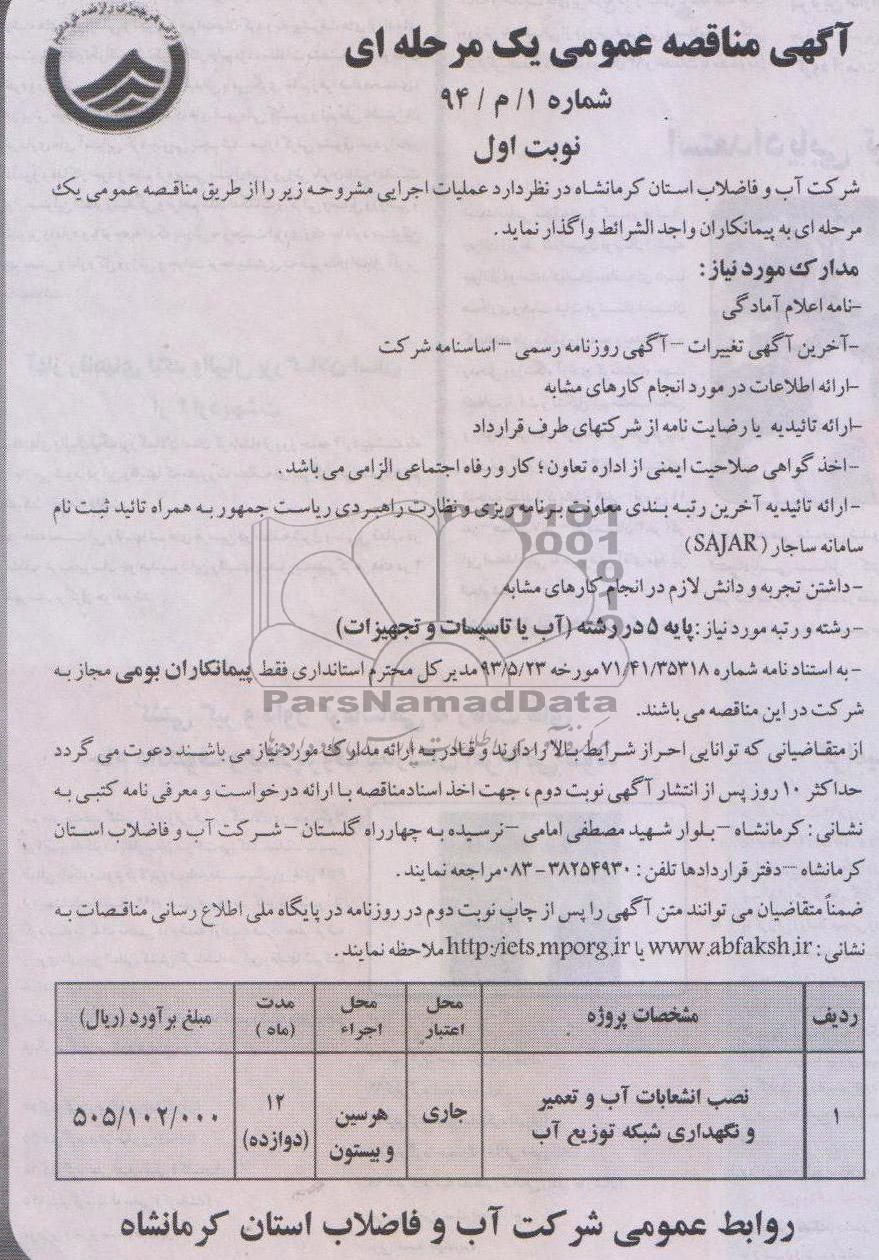 آگهی مناقصه عمومی یک مرحله ای
شماره ۱/ م / ۹۴
نوبت اول
شرکت آب و فاضلاب استان کرمانشاه در نظر دارد عملیات اجرایی مشروحه زیر را از طریق مناقصه عمومی یک
مرحله ای به پیمانکاران واجد الشرائط واگذار نماید .
مدارک مورد نیاز :
-نامه اعلام آمادگی
-آخرین آگهی تغییرات –آگهی روزنامه رسمی –اساسنامه شرکت
-ارائه اطلاعات در مورد انجام کارهای مشابه
-ارائه تائیدیه یا رضایت نامه از شرکتهای طرف قرارداد
-اخذ گواهی صلاحیت ایمنی از اداره تعاون ؛ کار و رفاه اجتماعی الزامی می باشد .
- ارائه تائیدیه آخرین رتبه بندی معاونت برنامه ریزی و نظارت راهبردی ریاست جمهور به همراه تائید ثبت نام
سامانه ساجار ( SAJAR)
-داشتن تجربه و دانش لازم در انجام کارهای مشابه
-رشته و رتبه مورد نیاز : پایه ۵ در رشته (آب یا تاسیسات و تجهیزات)
-به استناد نامه شماره ۷۱/۴۱/۳۵۳۱۸ مورخه ۹۳/۵/۲۳ مدیر کل محترم استانداری فقط پیمانکاران بومی مجاز به
ParsNamadData
شرکت در این مناقصه می باشند.
از متقاضیانی که توانایی احراز شرایط بالا را دارند و قادر به ارائه مدارک مورد نیاز می باشند دعوت می گردد
حداکثر ۱۰ روز پس از انتشار آگهی نوبت دوم ، جهت اخذ اسناد مناقصه با ارائه درخواست و معرفی نامه کتبی به
نشانی : کرمانشاه –بلوار شهید مصطفی امامی –نرسیده به چهارراه گلستان –شرکت آب و فاضلاب استان
کرمانشاه –دفتر قراردادها تلفن : ۳۸۲۵۴۹۳۰ -۰۸۳ مراجعه نمایند .
ضمناً متقاضیان می توانند متن آگهی را پس از چاپ نوبت دوم در روزنامه در پایگاه ملی اطلاع رسانی مناقصات به
نشانی : www.abfaksh.ir یا http:/iets.mporg.ir ملاحظه نمایند .
ردیف مشخصات پروژه محل اعتبار محل اجراء مدت (ماه ) مبلغ برآورد (ریال)
۱ نصب انشعابات آب و تعمیر و نگهداری شبکه توزیع آب جاری هرسین و بیستون ۱۲ (دوازده) ۵۰۵/۱۰۲/۰۰۰
روابط عمومی شرکت آب و فاضلاب استان کرمانشاه